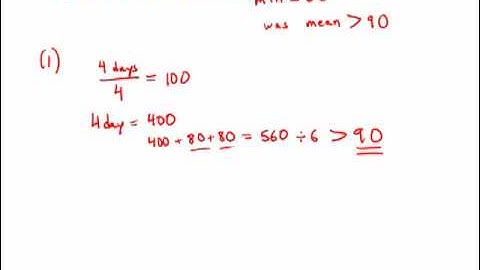 was mean > 90
(1) 4 days / 4 = 100
4 day = 400
400 + 80 + 80 = 560 ÷ 6 > 90